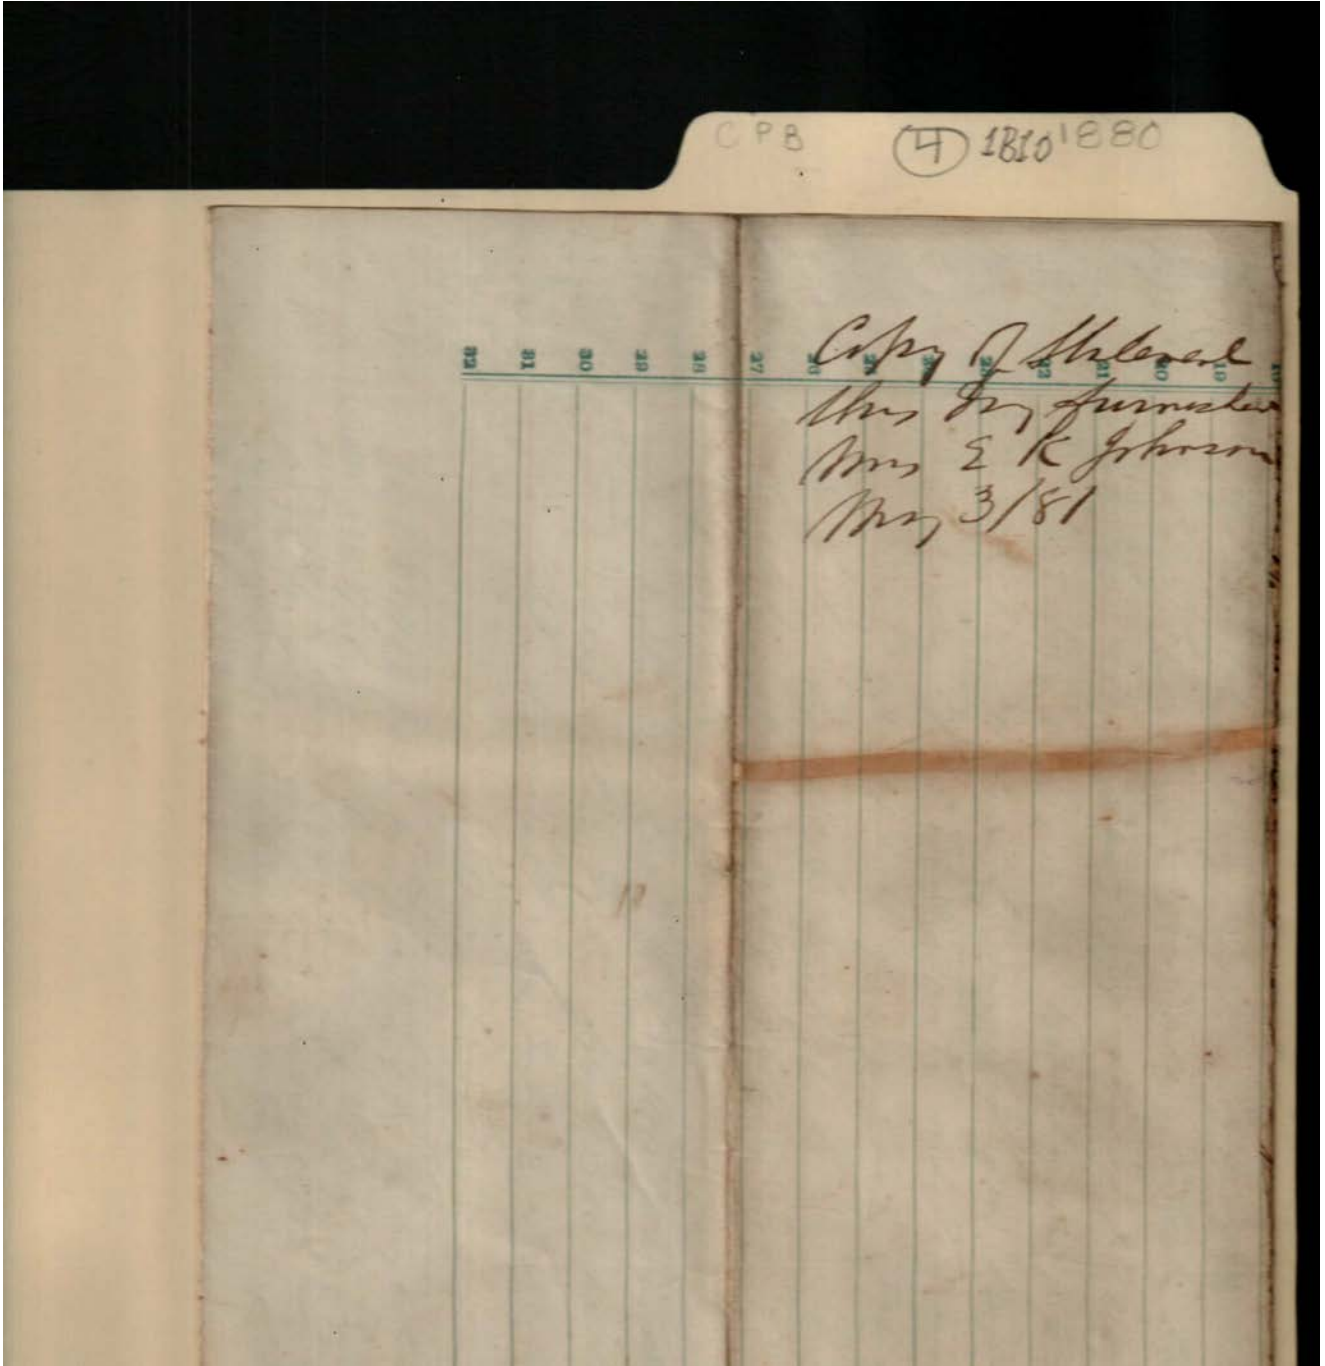 CPB 4 1B10 1880
32 31 30 29 28 27 26 25 24 23 22 21 20 19
Copy of Statement
this day furnished
Mrs E K Johnson
May 3/81